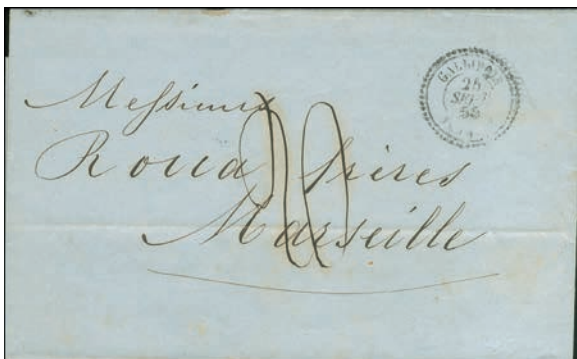 GALLIPOLI
25
SEPT
55
Messieurs
frères
Marseille